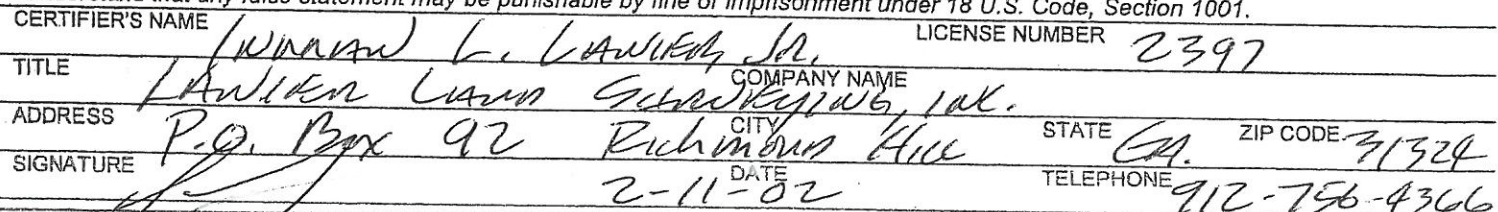 that any false statement may be punishable by fine or imprisonment under 18 U.S. Code, Section 1001.
CERTIFIER'S NAME INMAN L. LANIER, JR. LICENSE NUMBER 2397
TITLE COMPANY NAME LANIER LAND SURVEYING, INC.
ADDRESS P.O. Box 92 CITY Richmond Hill STATE GA. ZIP CODE 31324
SIGNATURE DATE 2-11-02 TELEPHONE 912-756-4366